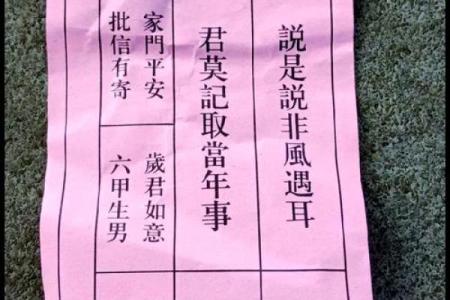 説是説非風遇耳
君莫記取當年事
家門平安
批信有寄
歲君如意
六甲生男